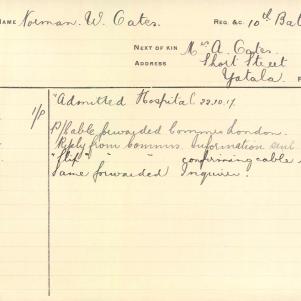 NAME Norman. W. Oates. REG. &C. 10th Bat
NEXT OF KIN Mrs A. Oates.
ADDRESS Short Street
Yatala.
1/P "Admitted Hospital 22.10.17.
P/Cable forwarded Commrs London.
Reply from Commrs. information sent
"slip" " " " confirming cable
Same forwarded Inquirer.